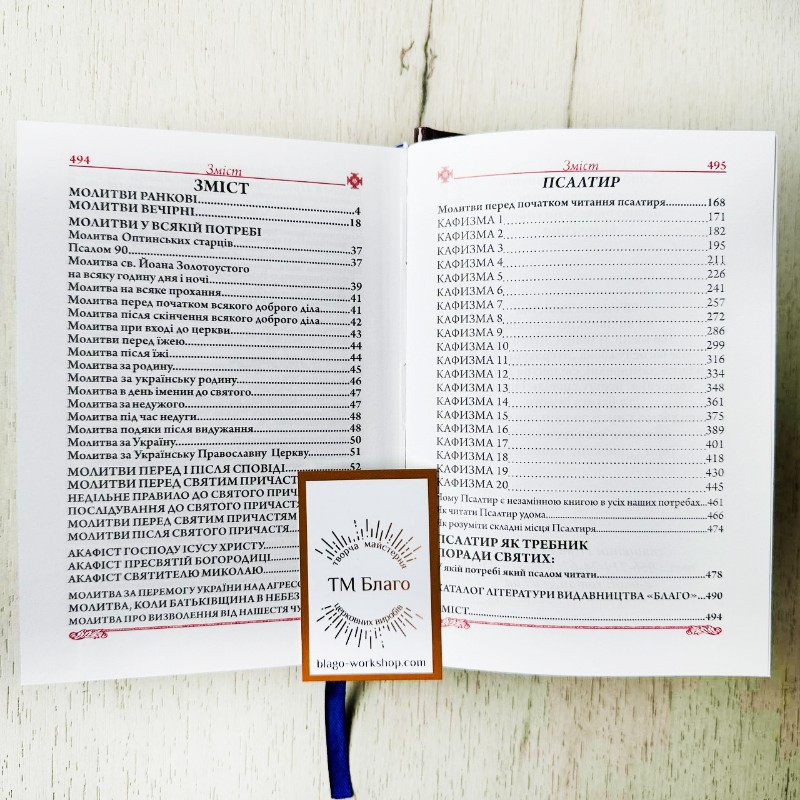 494
Зміст
ЗМІСТ
МОЛИТВИ РАНКОВІ..........4
МОЛИТВИ ВЕЧІРНІ..........18
МОЛИТВИ У ВСЯКІЙ ПОТРЕБІ
Молитва Оптинських старців..........37
Псалом 90..........37
Молитва св. Йоана Золотоустого
на всяку годину дня і ночі..........39
Молитва на всяке прохання..........41
Молитва перед початком всякого доброго діла..........41
Молитва після скінчення всякого доброго діла..........42
Молитва при вході до церкви..........43
Молитви перед їжею..........44
Молитва після їжі..........44
Молитва за родину..........45
Молитва за українську родину..........46
Молитва в день іменин до святого..........47
Молитва за недужого..........47
Молитва під час недуги..........48
Молитва подяки після видужання..........48
Молитва за Україну..........50
Молитва за Українську Православну Церкву..........51
МОЛИТВИ ПЕРЕД І ПІСЛЯ СПОВІДІ..........52
МОЛИТВИ ПЕРЕД СВЯТИМ ПРИЧАСТ
НЕДІЛЬНЕ ПРАВИЛО ДО СВЯТОГО ПРИЧ
ПОСЛІДУВАННЯ ДО СВЯТОГО ПРИЧАСТЯ
МОЛИТВИ ПЕРЕД СВЯТИМ ПРИЧАСТЯМ
МОЛИТВИ ПІСЛЯ СВЯТОГО ПРИЧАСТЯ
АКАФІСТ ГОСПОДУ ІСУСУ ХРИСТУ
АКАФІСТ ПРЕСВЯТІЙ БОГОРОДИЦІ
АКАФІСТ СВЯТИТЕЛЮ МИКОЛАЮ
МОЛИТВА ЗА ПЕРЕМОГУ УКРАЇНИ НАД АГРЕС
МОЛИТВА, КОЛИ БАТЬКІВЩИНА В НЕБЕЗ
МОЛИТВА ПРО ВИЗВОЛЕННЯ ВІД НАШЕСТЯ ЧУ
495
Зміст
ПСАЛТИР
Молитви перед початком читання псалтиря..........168
КАФИЗМА 1..........171
КАФИЗМА 2..........182
КАФИЗМА 3..........195
КАФИЗМА 4..........211
КАФИЗМА 5..........226
КАФИЗМА 6..........241
КАФИЗМА 7..........257
КАФИЗМА 8..........272
КАФИЗМА 9..........286
КАФИЗМА 10..........299
КАФИЗМА 11..........316
КАФИЗМА 12..........334
КАФИЗМА 13..........348
КАФИЗМА 14..........361
КАФИЗМА 15..........375
КАФИЗМА 16..........389
КАФИЗМА 17..........401
КАФИЗМА 18..........418
КАФИЗМА 19..........430
КАФИЗМА 20..........445
Чому Псалтир є незамінною книгою в усіх наших потребах..........461
Як читати Псалтир удома..........466
Як розуміти складні місця Псалтиря..........474
ПСАЛТИР ЯК ТРЕБНИК
ПОРАДИ СВЯТИХ:
У якій потребі який псалом читати..........478
КАТАЛОГ ЛІТЕРАТУРИ ВИДАВНИЦТВА «БЛАГО»..........490
ЗМІСТ..........494
творча майстерня
ТМ Благо
церковних виробів
blago-workshop.com